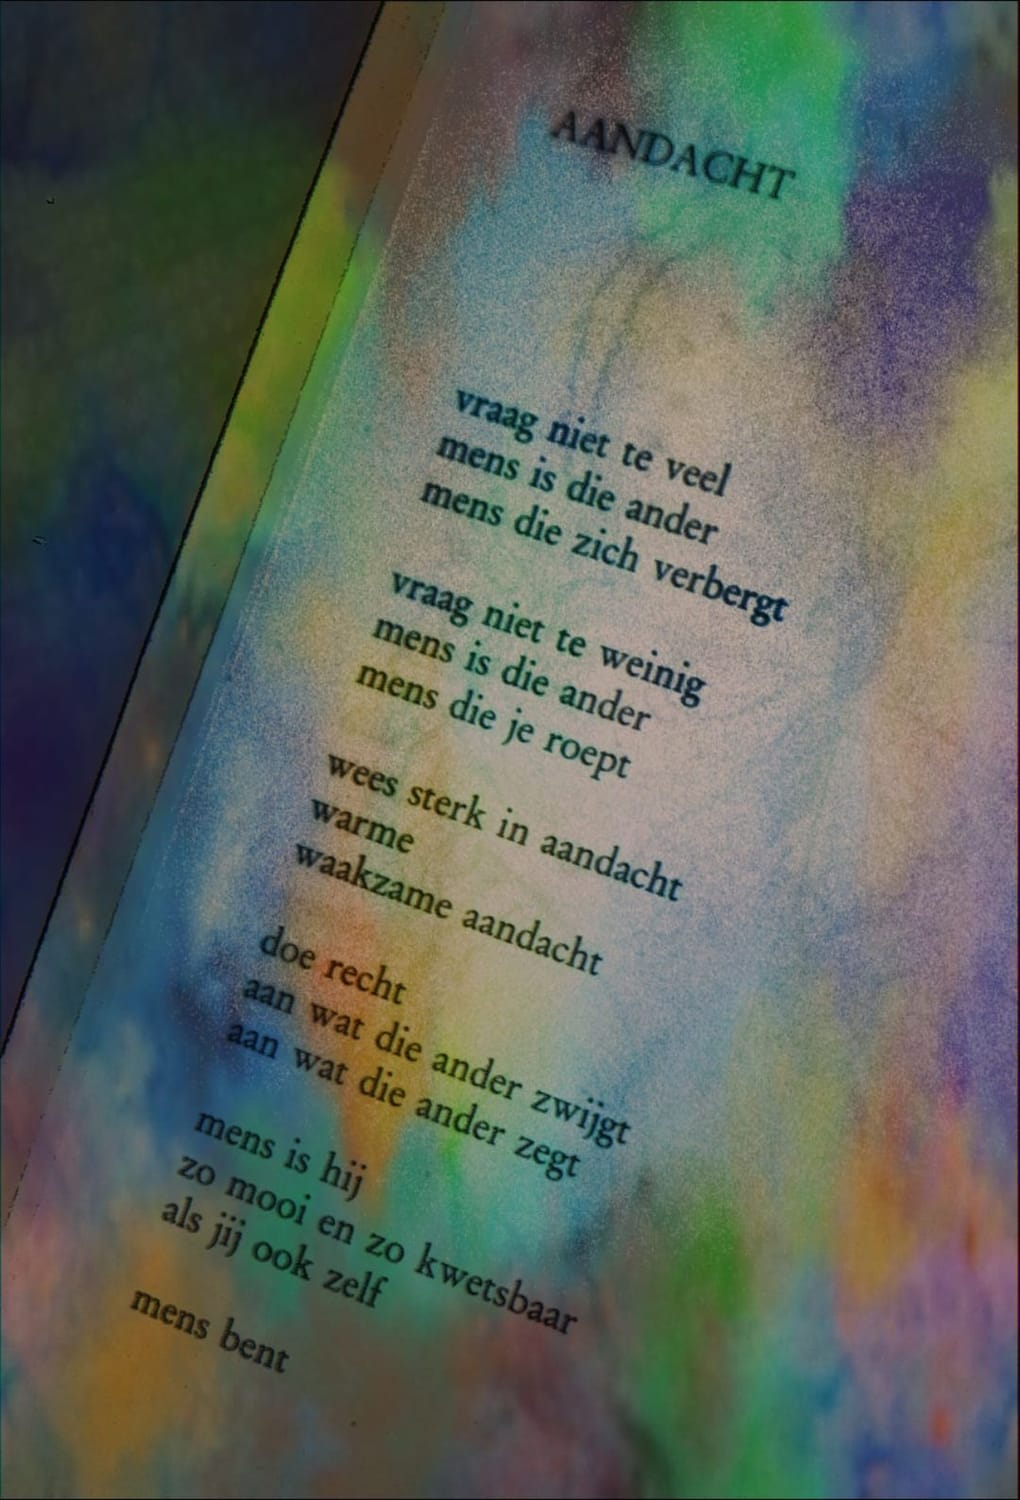 AANDACHT
vraag niet te veel
mens is die ander
mens die zich verbergt
vraag niet te weinig
mens is die ander
mens die je roept
wees sterk in aandacht
warme
waakzame aandacht
doe recht
aan wat die ander zwijgt
aan wat die ander zegt
mens is hij
zo mooi en zo kwetsbaar
als jij ook zelf
mens bent